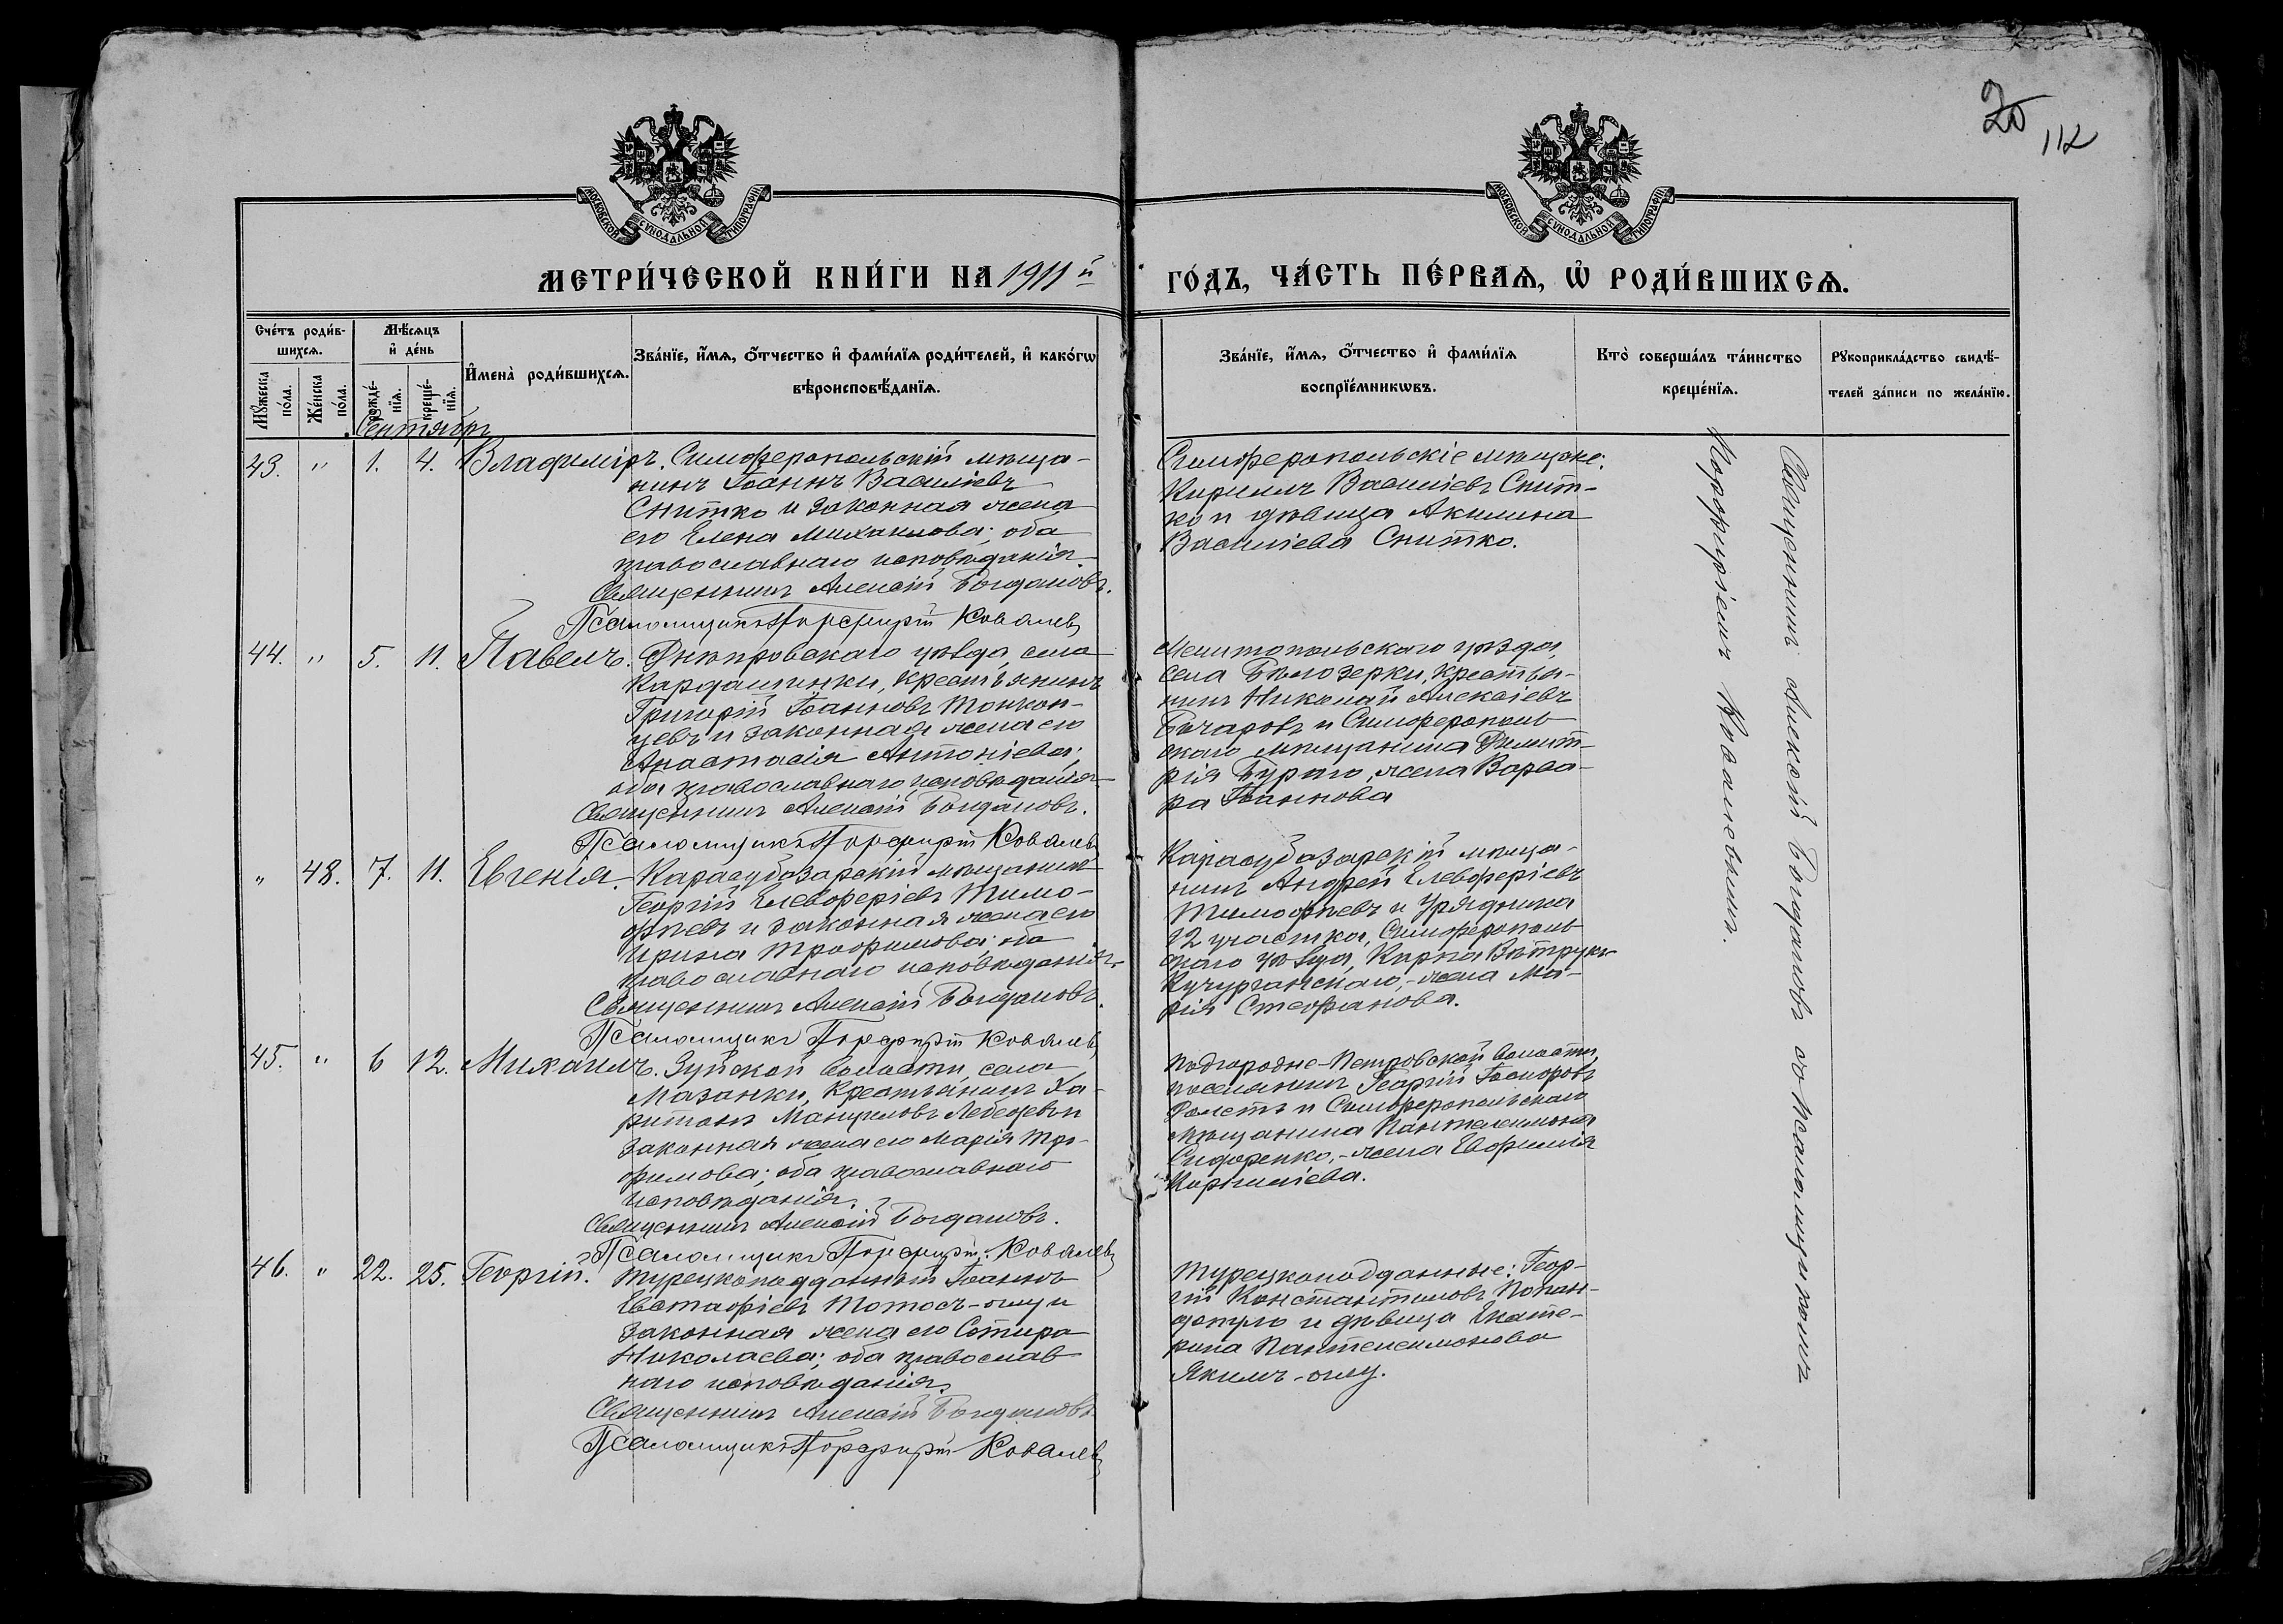 20
112
МОСКОВСКОЙ СѴНОДАЛЬНОЙ ТИПОГРАФІИ
МОСКОВСКОЙ СѴНОДАЛЬНОЙ ТИПОГРАФІИ
МЕТРИ́ЧЕСКОЙ КНИ́ГИ НА 1911й ГО́ДЪ, ЧА́СТЬ ПЕ́РВАѦ, Ѡ҆ РОДИ́ВШИХСѦ.
Сче́тъ роди́в-
шихсѧ.
Мꙋ́жеска
по́ла.
Же́нска
по́ла.
Мѣ́сѧцъ
и҆ де́нь
рожде́-
нїѧ.
креще́-
нїѧ.
И҆мена̀ роди́вшихсѧ.
Зва́нїе, и҆́мѧ, ѻ҆́тчество и҆ фами́лїѧ роди́телей, и҆ како́гѡ
вѣроисповѣ́данїѧ.
Зва́нїе, и҆́мѧ, ѻ҆́тчество и҆ фами́лїѧ
воспрїе́мникѡвъ.
Кто̀ соверша́лъ та́инство
креще́нїѧ.
Рꙋкоприкла́дство свидѣ́-
телей за́писи по жела́нїю.
Сентябрь
43. " 1. 4. Владиміръ. Симферопольскій мѣща-
нинъ Іоаннъ Васильевъ
Снитко и законная жена
его Елена Михаилова; оба
православнаго исповѣданія.
Священникъ Алексій Богдановъ.
Псаломщикъ Порфирій Ковалевъ
Симферопольскіе мѣщане:
Кириллъ Василіевъ Снит-
ко и дѣвица Акилина
Василіева Снитко.
44. " 5. 11. Павелъ. Днѣпровскаго уѣзда, села
Кардашинки, крестьянинъ
Григорій Іоанновъ Тонкон-
цевъ и законная жена его
Анастасія Антоніева;
оба православнаго исповѣданія
Священникъ Алексій Богдановъ.
Псаломщикъ Порфирій Ковалевъ
Мелитопольскаго уѣзда,
села Бѣлозерки, крестья-
нинъ Николай Алексіевъ
Бочаровъ и Симферополь-
скаго мѣщанина Димит-
рія Бураго, жена Варва-
ра Іоаннова
" 48. 7. 11. Евгенія. Карасубазарскій мѣщанинъ
Георгій Елевферіевъ Тимо-
фѣевъ и законная жена его
Ирина Трофимова; оба
православнаго исповѣданія.
Священникъ Алексій Богдановъ.
Псаломщикъ Порфирій Ковалевъ
Карасубазарскій мѣща-
нинъ Андрей Елевферіевъ
Тимофѣевъ и Урядника
12 участка, Симферополь-
скаго уѣзда, Карпа
Кучурганскаго,- жена Ма-
рія Стефанова.
45. " 6 12. Михаилъ. Зуйской волости, села
Мазанки, крестьянинъ Ха-
ритонъ Мануиловъ Лебедевъ и
законная жена его Марія Тро-
фимова; оба православнаго
исповѣданія.
Священникъ Алексій Богдановъ.
Псаломщикъ Порфирій Ковалевъ
Подгородне-Петровской волости,
поселянинъ Георгій
и Симферопольскаго
мѣщанина Пантелеимона
Сидоренко,- жена Евфимія
Корниліева.
46. " 22. 25. Георгій. Турецкоподданный Іоаннъ
Евстафіевъ Томосъ-оглу и
законная жена его Сотира
Николаева; оба православ
наго исповѣданія.
Священникъ Алексій Богдановъ.
Псаломщикъ Порфирій Ковалевъ
Турецкоподданные: Геор-
гій Константиновъ Попан-
допуло и дѣвица Екате-
рина Пантелеимонова
Якимъ-оглу.
Священникъ Алексій Богдановъ съ Псаломщикомъ
Порфиріемъ Ковалевымъ.